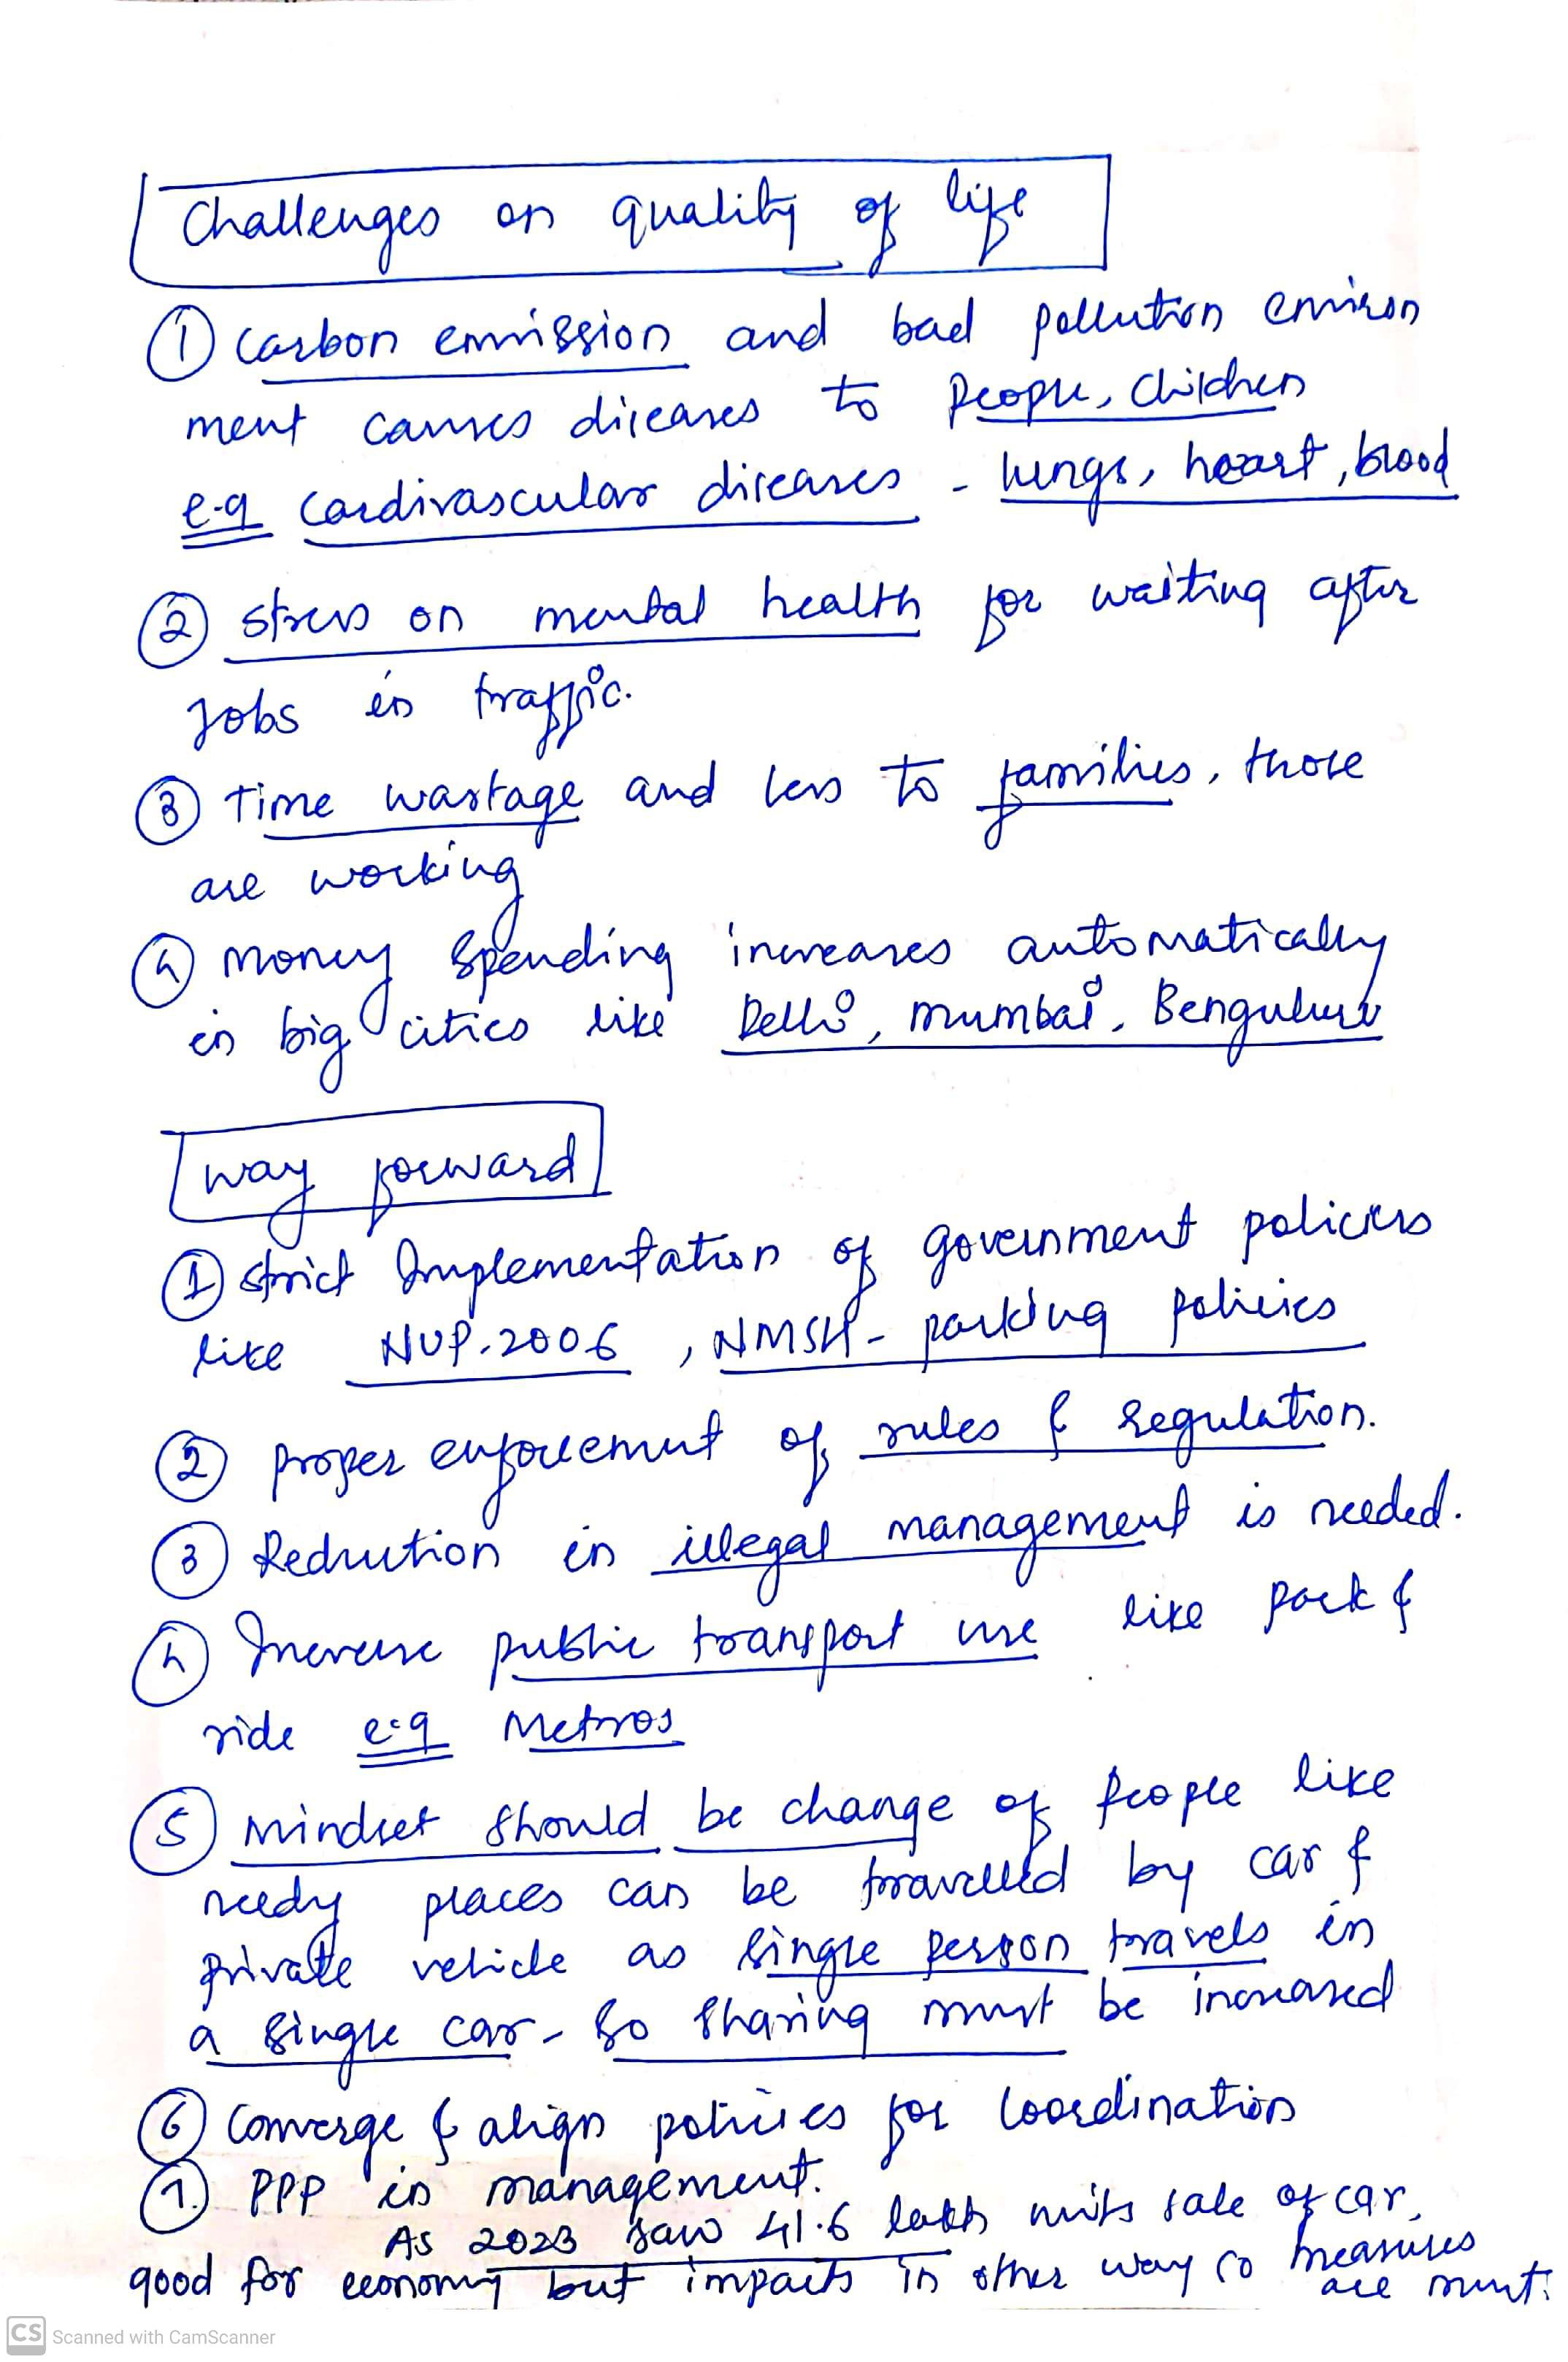 Challenges on quality of life
① Carbon emmission and bad pollution environ
ment causes diseases to People, Children
e.g cardivascular diseases - lungs, heart, blood
② stress on mental health for waiting after
Jobs in traffic.
③ Time wastage and less to families, those
are working
④ money spending increases automatically
in big cities like Delhi, mumbai, Benguluru
way forward
① strict Implementation of government policies
like NUP-2006, NMSH - parking policies
② proper enforcement of rules & regulation.
③ Reduction in illegal management is needed.
④ Increase public transport use like park &
ride e.g Metros
⑤ mindset should be change of people like
needy places can be travelled by car &
private vehicle as single person travels in
a single car - so sharing must be increased
⑥ Converge & align policies for coordination
7. PPP in management.
As 2023 saw 41.6 lakh units sale of car,
good for economy but impacts in other way so measures
are must.
CS Scanned with CamScanner